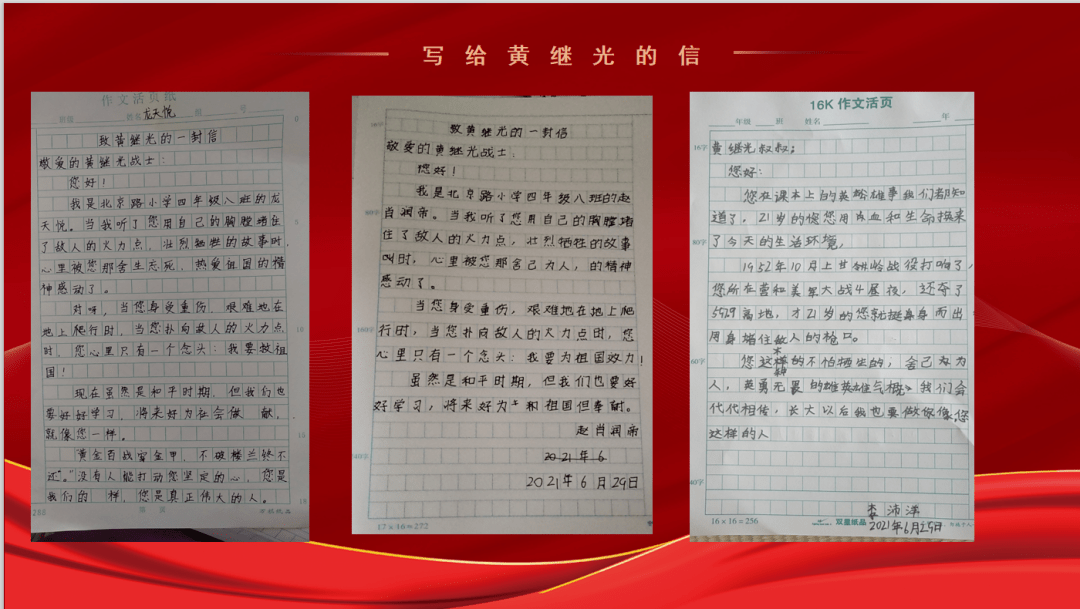 写给黄继光的信
作文活页纸
龙天悦
致黄继光的一封信
敬爱的黄继光战士:
您好!
我是北京路小学四年级八班的龙
天悦。当我听了您用自己的胸膛堵住
了敌人的火力点,壮烈牺牲的故事时,
心里被您那舍生忘死,热爱祖国的精
神感动了。
对呀,当您身受重伤,艰难地在
地上爬行时,当您扑向敌人的火力点
时,您心里只有一个念头:我要救祖
国!
现在虽然是和平时期,但我们也
要好好学习,将来好为社会做 献,
就像您一样。
黄金百战穿金甲,不破楼兰终不
还。”没有人能打动您坚定的心,您是
我们的 样,您是真正伟大的人。
致黄继光的一封信
敬爱的黄继光战士:
您好!
我是北京路小学四年级八班的赵
肖润帝。当我听了您用自己的胸膛堵
住了敌人的火力点,壮烈牺牲的故事
叫时,心里被您那舍己为人,的精神
感动了。
当您身受重伤,艰难地在地上爬
行时,当您扑向敌人的火力点时,您
心里只有一个念头:我要为祖国效力!
虽然是和平时期,但我们也要好
好学习,将来好为 和祖国但奉献。
赵肖润帝
2021年6
2021年6月29日
17×16=272
16K 作文活页
年级 班 姓名 年
黄继光叔叔:
您好:
您在课本上的英雄事我们都知
道了,21岁的您用热血和生命换来
了今天的生活环境,
1952年10月上甘岭战役打响了,
您所在营和美军大战4昼夜,还夺了
597.9高地,才21岁的您就挺身而出
用身堵住敌人的枪口。
您这样的不怕牺生的,舍己为
人,英勇无畏的英雄气概,我们会
代代相传,长大以后我也要做像您
这样的人
李沛泽
2021年6月25日
16×16=256
双星纸品